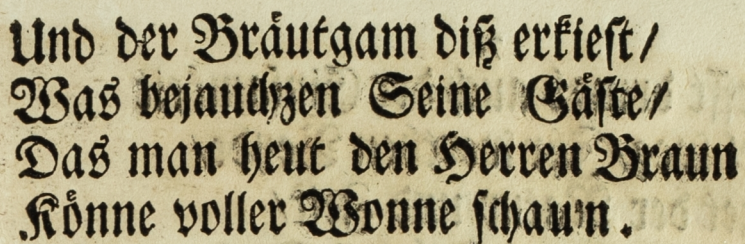 Und der Bräutgam diß erkieſt/
Was bejauchzen Seine Gäſte/
Das man heut den Herren Braun
Könne voller Wonne ſchaun.